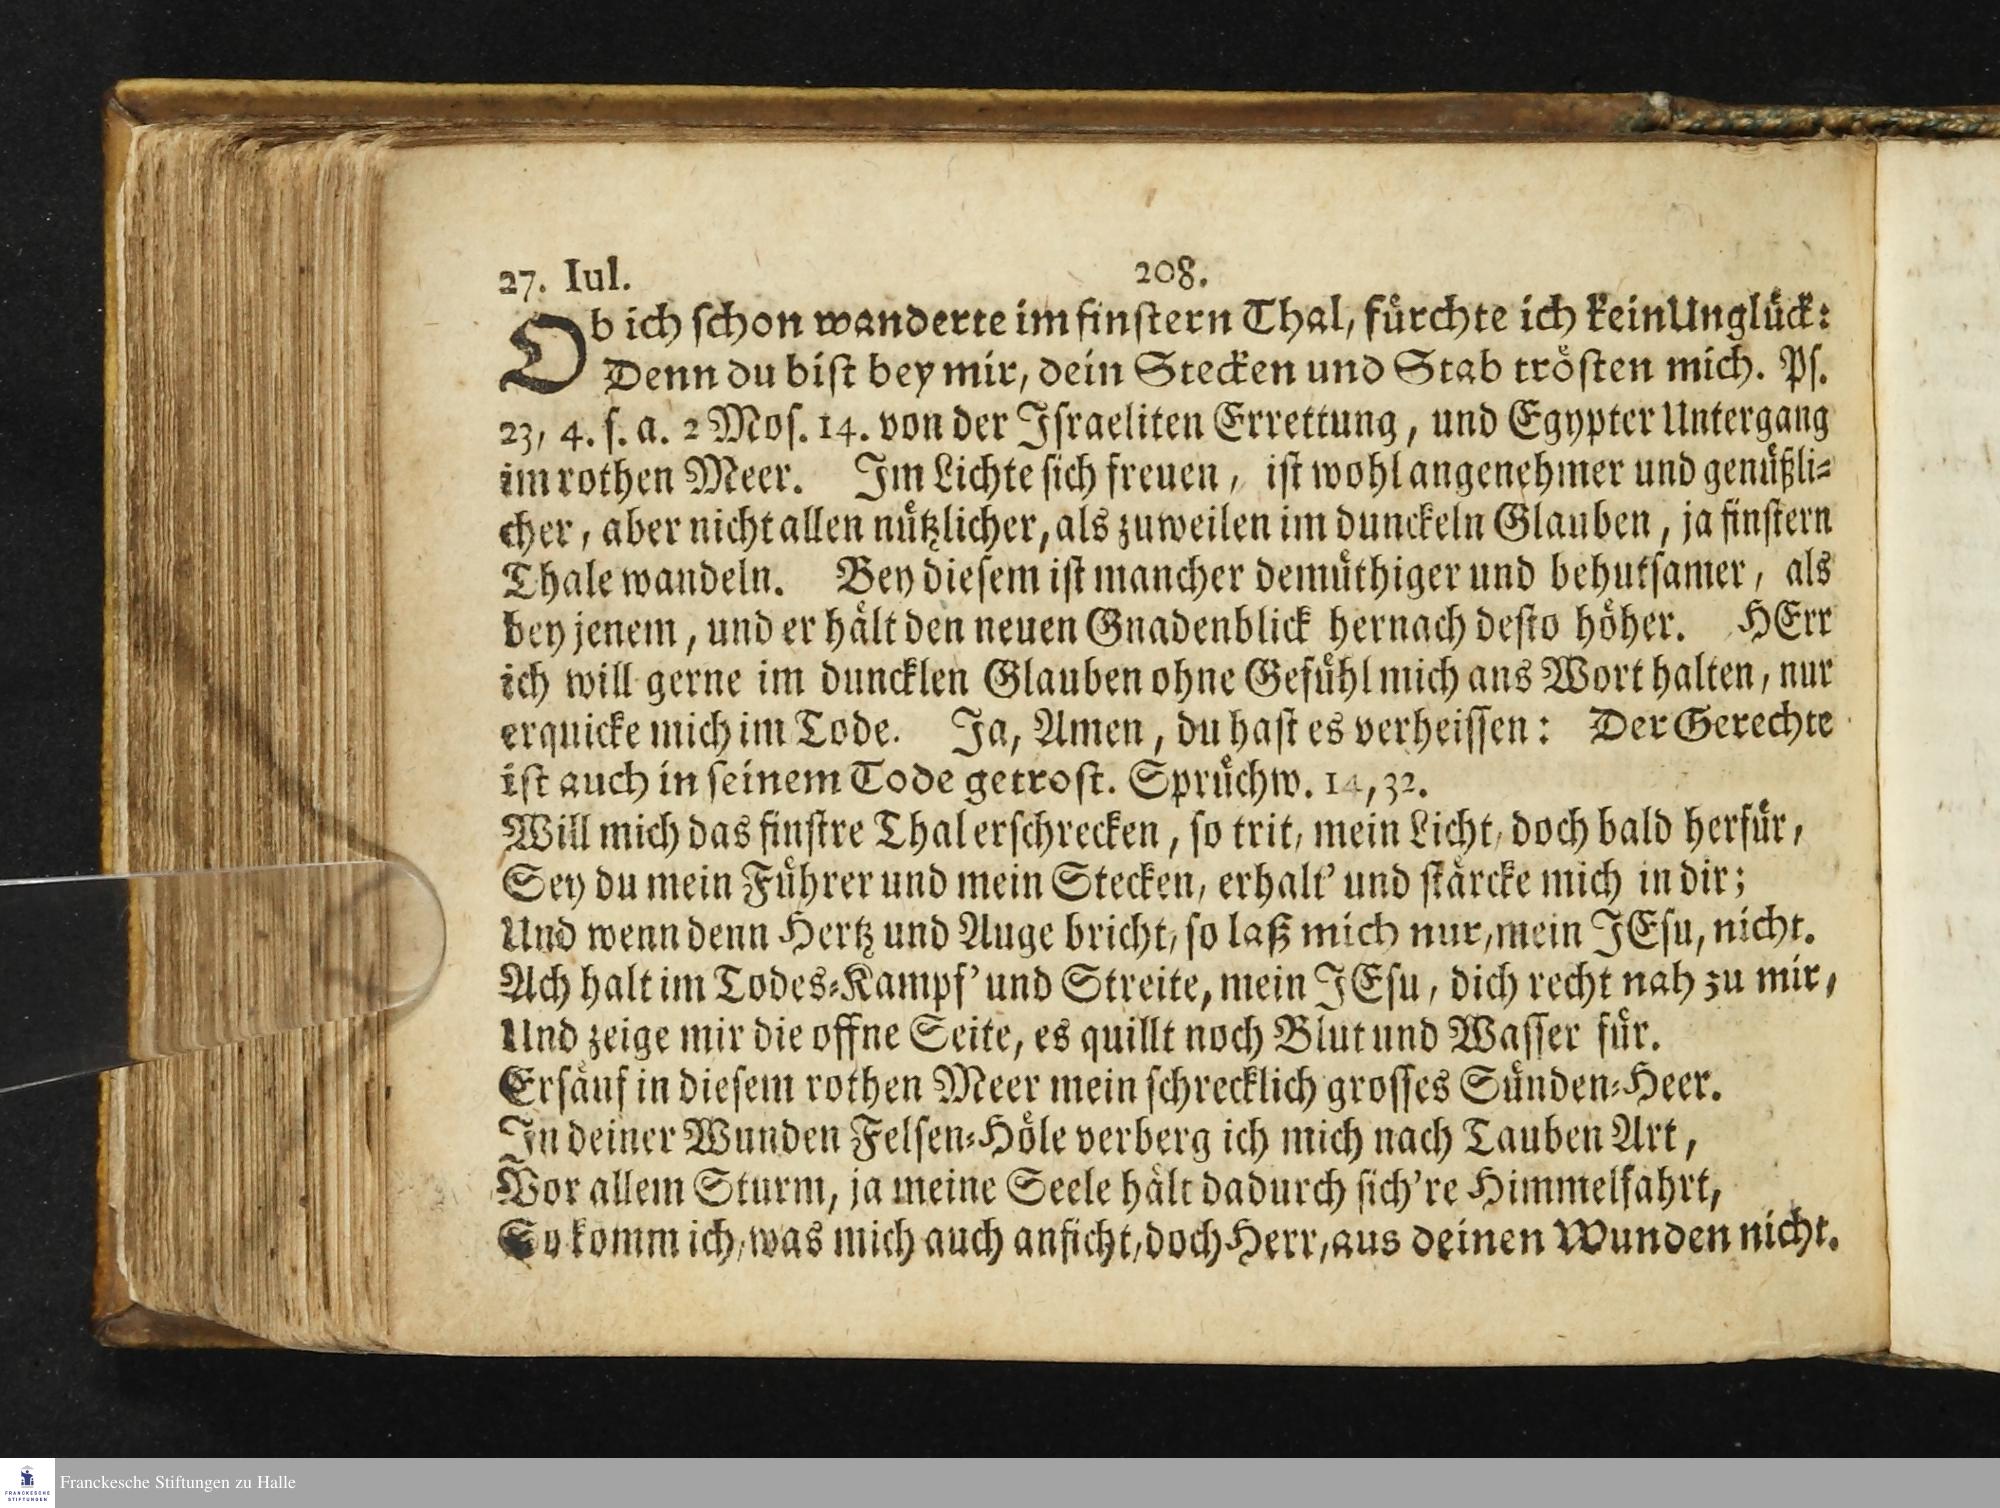 27. Iul. 208.
Ob ich schon wanderte im finstern Thal, fürchte ich kein Unglück:
Denn du bist bey mir, dein Stecken und Stab trösten mich. Ps.
23, 4. s. a. 2 Mos. 14. von der Israeliten Errettung, und Egypter Untergang
im rothen Meer. Im Lichte sich freuen, ist wohl angenehmer und genüßli-
cher, aber nicht allen nützlicher, als zuweilen im dunckeln Glauben, ja finstern
Thale wandeln. Bey diesem ist mancher demüthiger und behutsamer, als
bey jenem, und er hält den neuen Gnadenblick hernach desto höher. HErr
ich will gerne im duncklen Glauben ohne Gefühl mich ans Wort halten, nur
erquicke mich im Tode. Ja, Amen, du hast es verheissen: Der Gerechte
ist auch in seinem Tode getrost. Sprüchw. 14, 32.
Will mich das finstre Thal erschrecken, so trit, mein Licht, doch bald herfür,
Sey du mein Führer und mein Stecken, erhalt' und stärcke mich in dir;
Und wenn denn Hertz und Auge bricht, so laß mich nur, mein JEsu, nicht.
Ach halt im Todes-Kampf' und Streite, mein JEsu, dich recht nah zu mir,
Und zeige mir die offne Seite, es quillt noch Blut und Wasser für.
Ersäuf in diesem rothen Meer mein schrecklich grosses Sünden-Heer.
In deiner Wunden Felsen-Höle verberg ich mich nach Tauben Art,
Vor allem Sturm, ja meine Seele hält dadurch sich're Himmelfahrt,
So komm ich, was mich auch anficht, doch Herr, aus deinen Wunden nicht.
FRANCKESCHE
STIFTUNGEN
Franckesche Stiftungen zu Halle